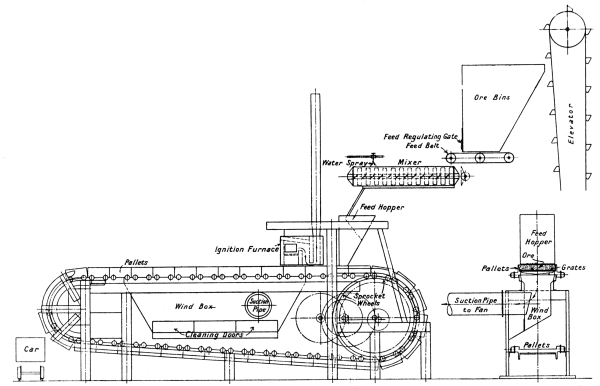 Ore Bins
Elevator
Feed Regulating Gate
Feed Belt
Water Spray
Mixer
Feed Hopper
Ignition Furnace
Pallets
Wind Box
Suction
Pipe
Sprocket
Wheels
Cleaning Doors
Car
Feed
Hopper
Ore
Pallets
Grates
Suction Pipe
to Fan
Wind
Box
Pallets